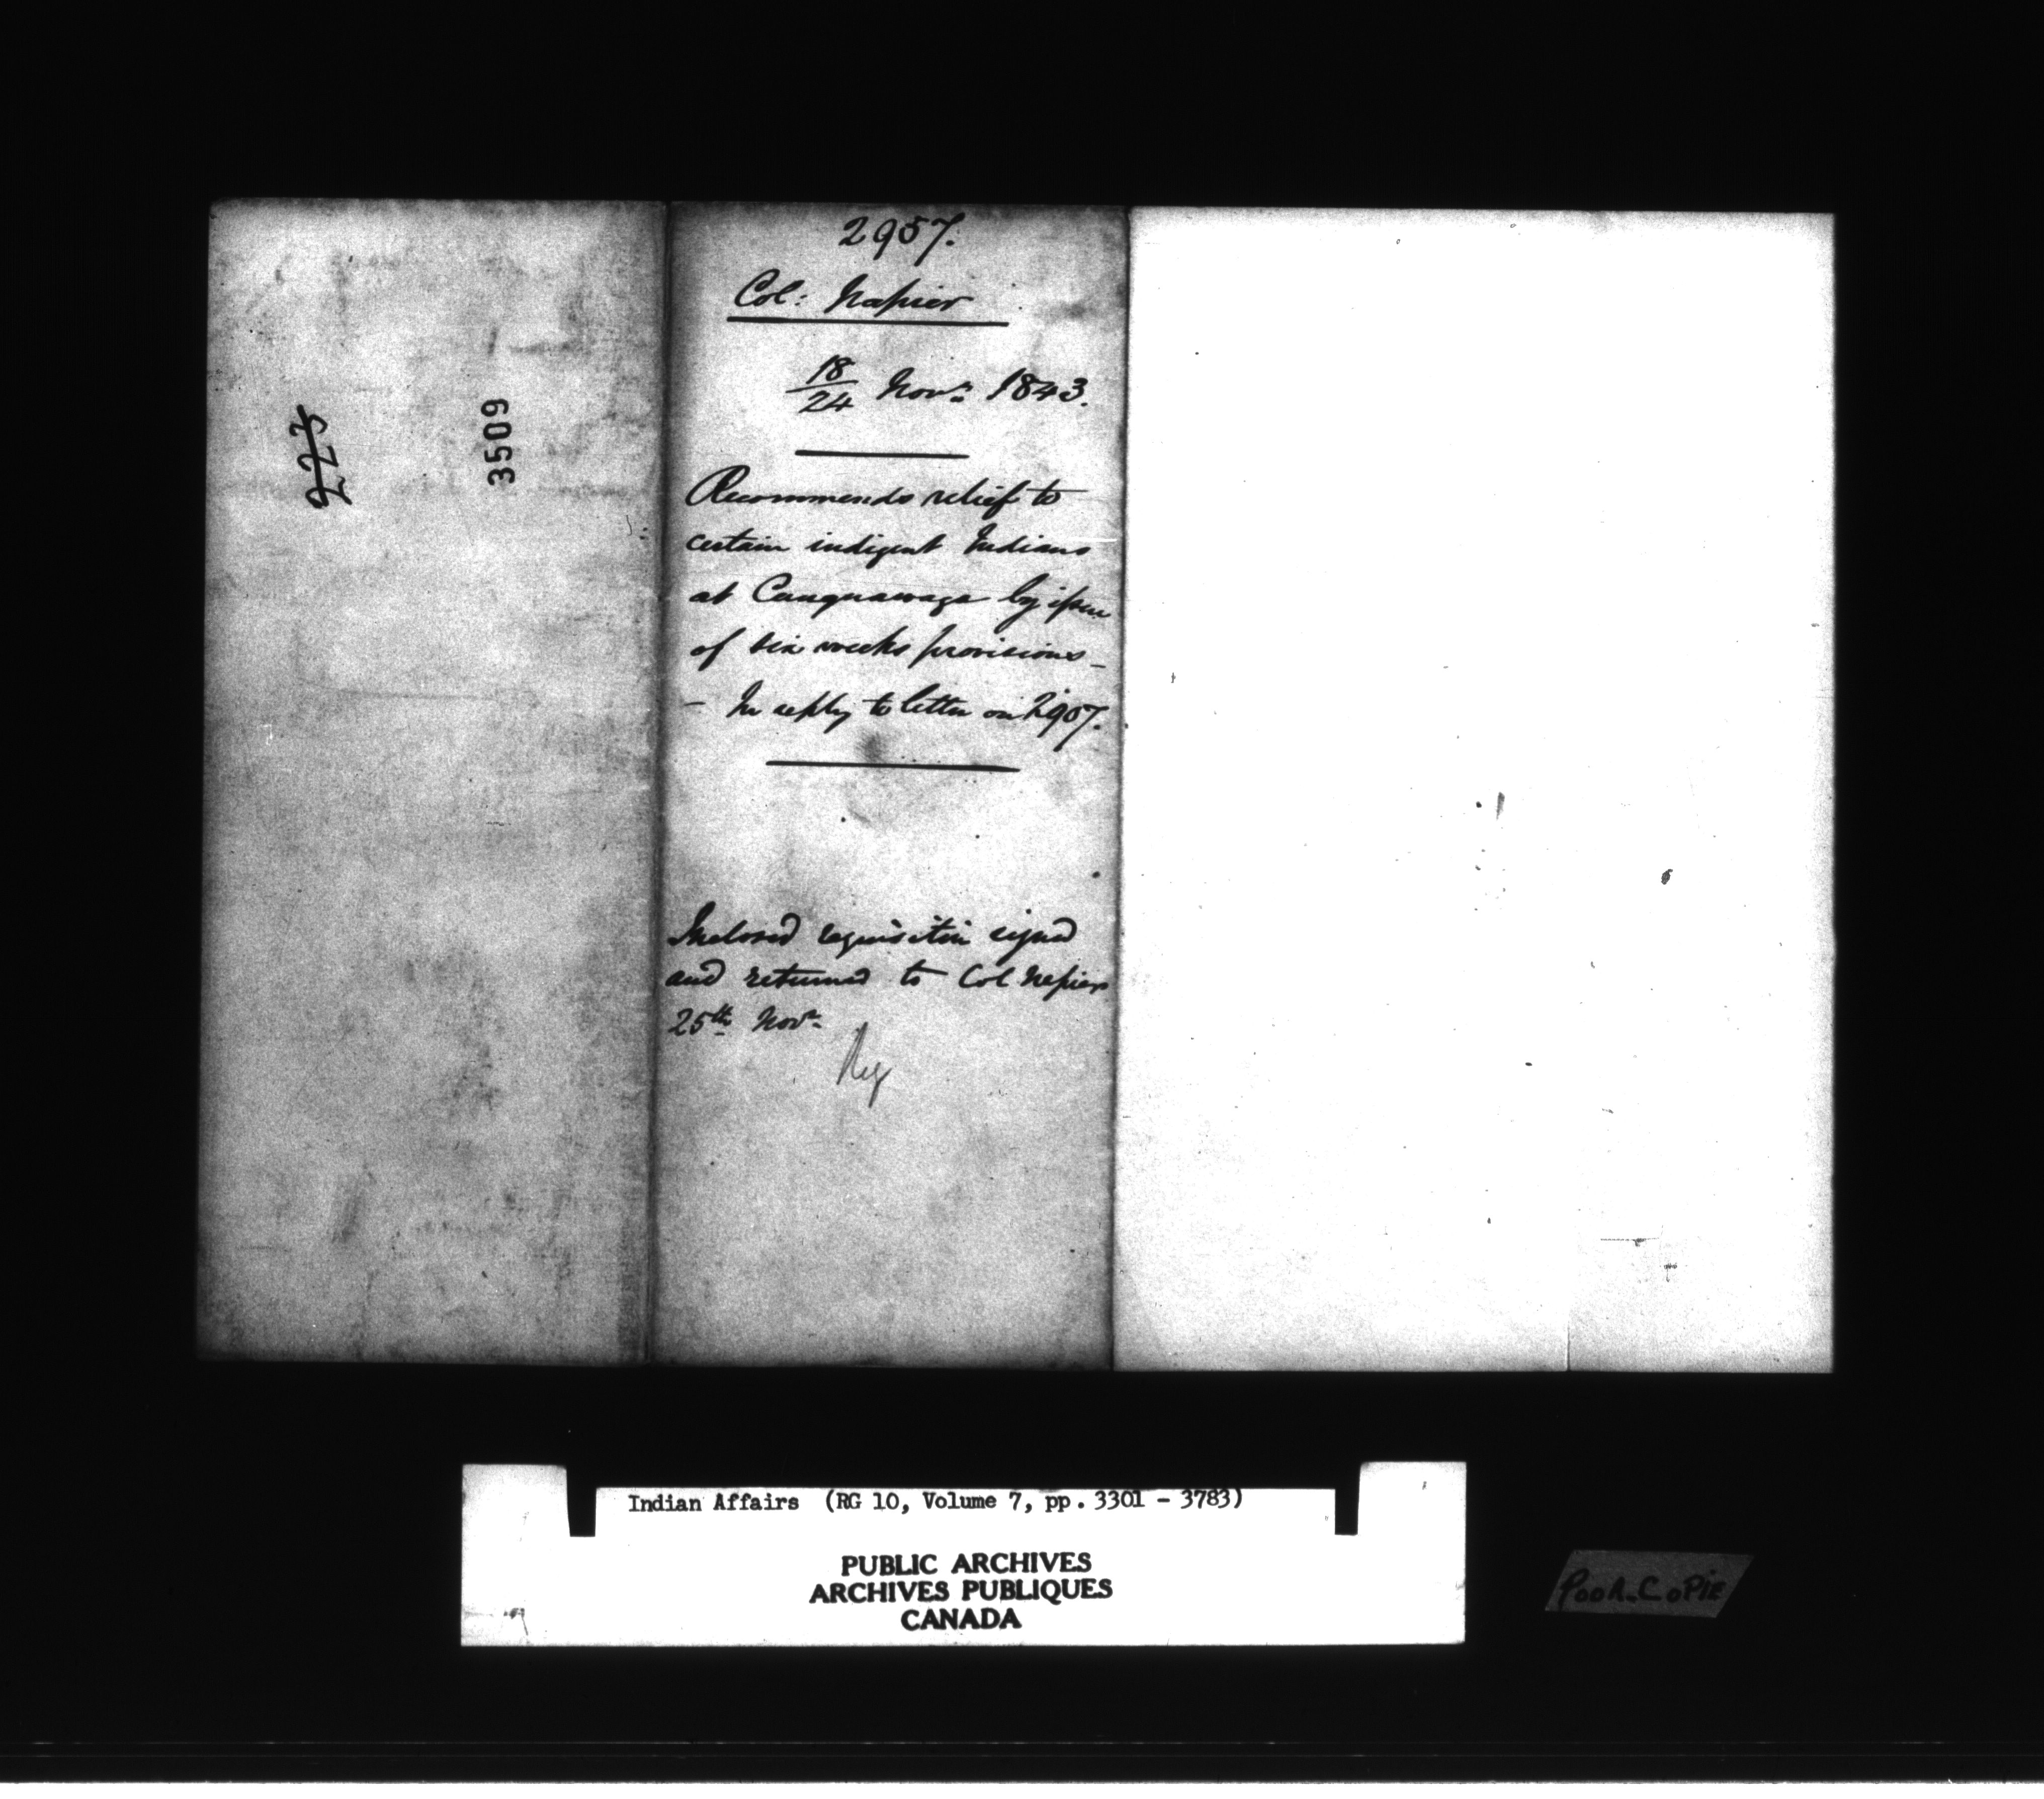 223
3509
2957.
Col: Napier
18/24 Novr. 1843.
Recommends relief to
certain indigent Indians
at Caugnawaga by issue
of six weeks provisions -
- In reply to letter on 2907.
Inclosed requisition signed
and returned to Col Napier
25th Novr.
Indian Affairs (RG 10, Volume 7, pp. 3301 - 3783)
PUBLIC ARCHIVES
ARCHIVES PUBLIQUES
CANADA
POOR-COPIE